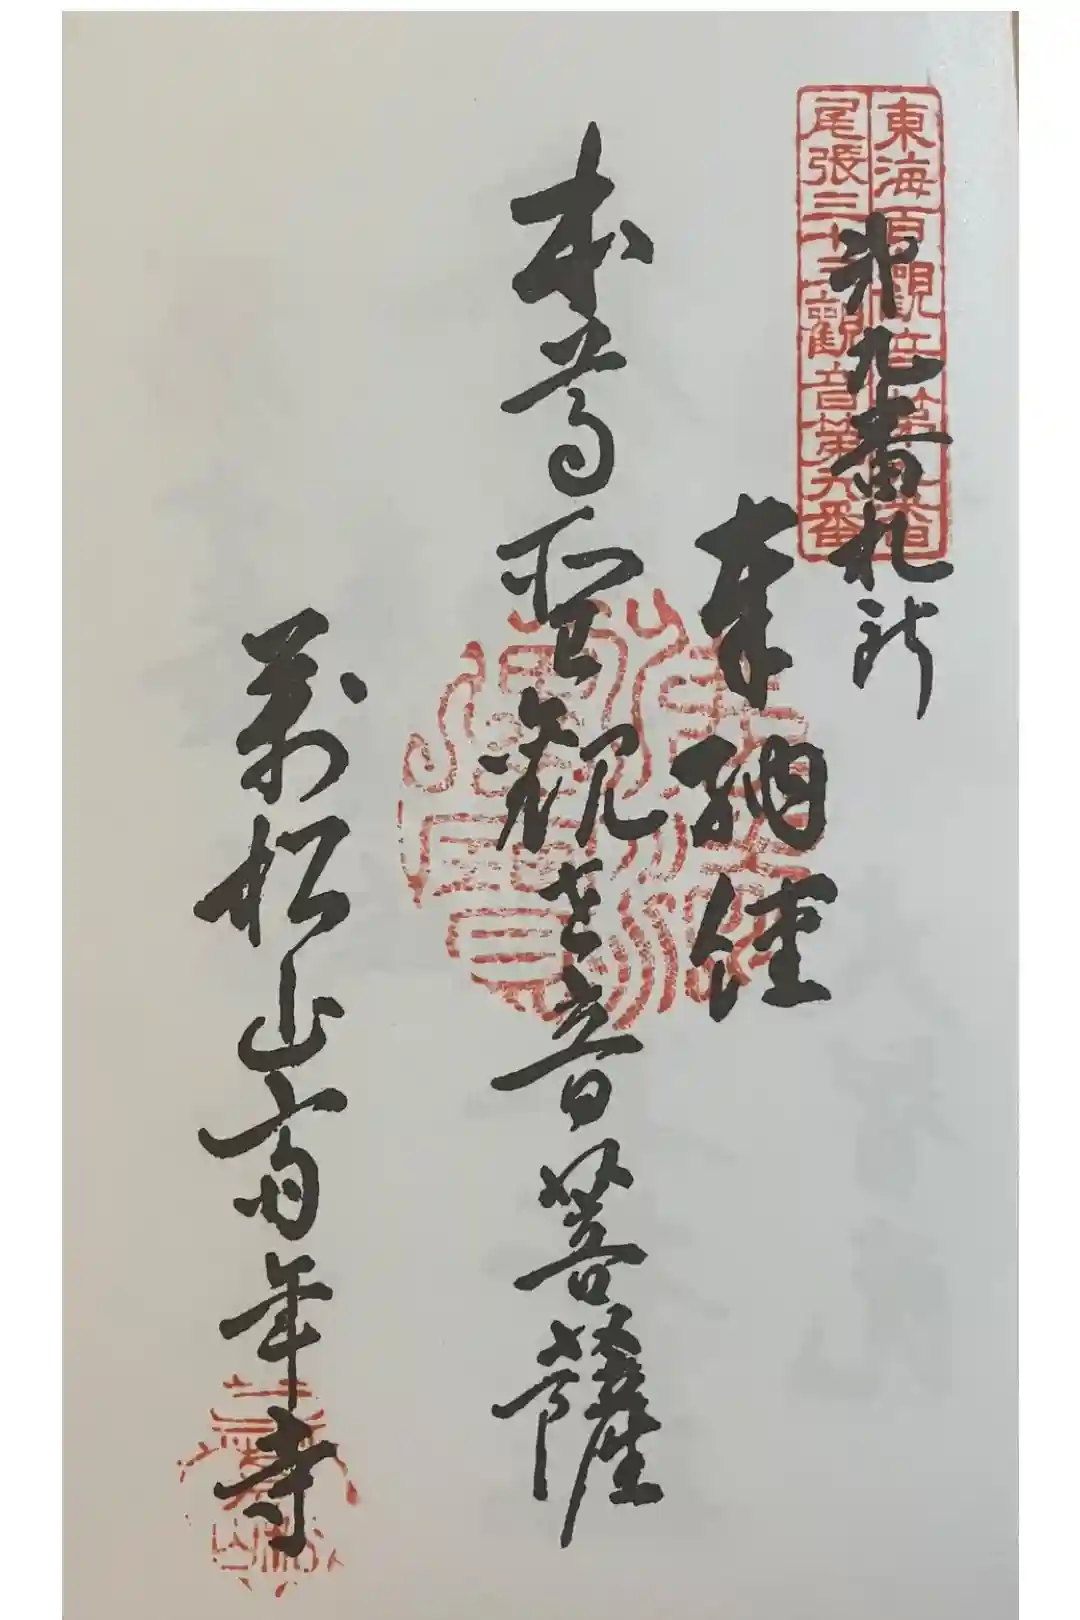 東海百觀音第九番
尾張三十三觀音第九番
第九番札所
奉納経
本尊聖観世音菩薩
萬松山斉年寺